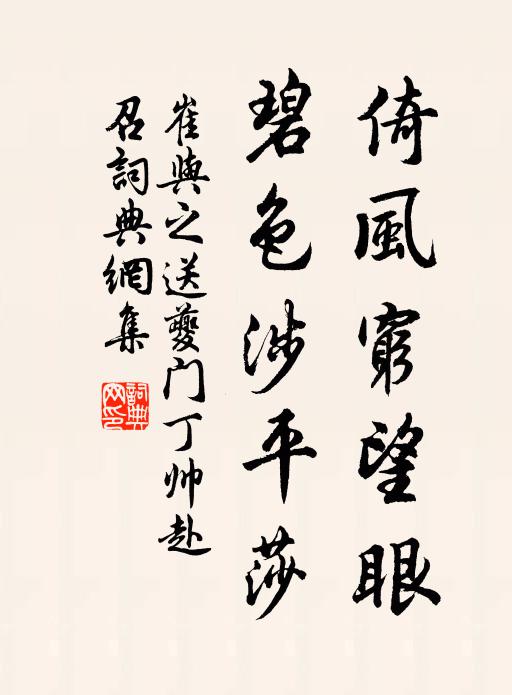 倚風窮望眼
碧色涉平莎
崔與之送夔门丁帅赴
召詞典網集
詞典
网印